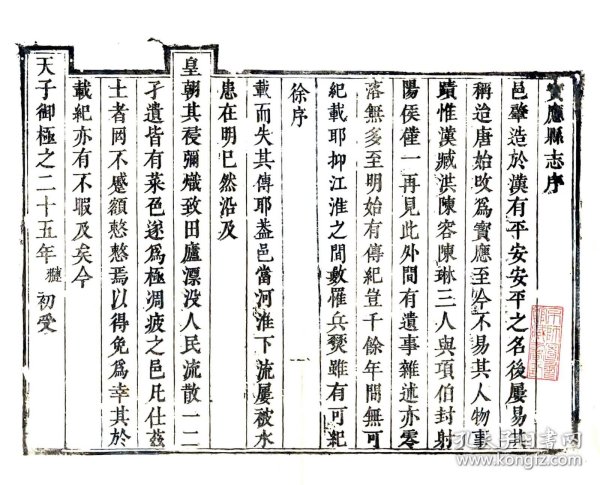 寶應縣志序
邑肇造於漢有平安安平之名後屢易其
稱迨唐始改爲寶應至今不易其人物事
蹟惟漢臧洪陳容陳琳三人與項伯封射
陽侯僅一再見此外間有遺事雜述亦零
落無多至明始有傳紀豈千餘年間無可
紀載耶抑江淮之間數罹兵燹雖有可紀
徐序
載而失其傳耶蓋邑當河淮下流屢被水
患在明已然沿及
皇朝其祲彌熾致田廬漂没人民流散一二
孑遺皆有菜色遂爲極凋疲之邑凡仕茲
土者罔不蹙額愁愁焉以得免爲幸其於
載紀亦有不暇及矣今
天子御極之二十五年 初受
孔夫子旧书网
www.kongfz.com